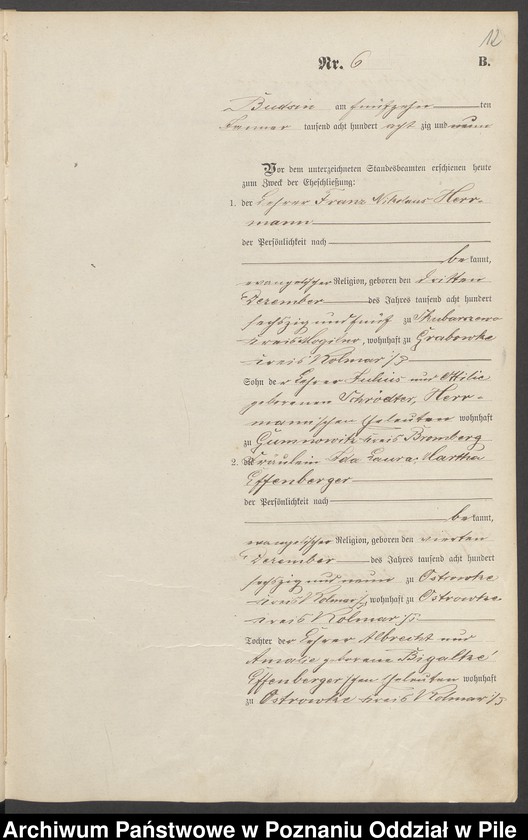 12
Nr. 6 B.
Budsin am fünfzehn ten
Januar tausend acht hundert acht zig und neun
Vor dem unterzeichneten Standesbeamten erschienen heute
zum Zweck der Eheschließung:
1. der Lehrer Franz Nikolaus Herr-
mann
der Persönlichkeit nach
be kannt,
evangelischer Religion, geboren den dritten
Dezember des Jahres tausend acht hundert
sechszig und fünf zu Skubarczewo
Kreis Mogilno, wohnhaft zu Grabowke
Kreis Kolmar i/P
Sohn der Lehrer Julius und Ottilie
geborenen Schrödter, Herr-
mannschen Eheleuten wohnhaft
zu Gumnowitz Kreis Bromberg
2. die Fräulein Ida Laura Martha
Effenberger
der Persönlichkeit nach
be kannt,
evangelischer Religion, geboren den vierten
Dezember des Jahres tausend acht hundert
sechszig und neun zu Ostrowke
Kreis Kolmar i/P, wohnhaft zu Ostrowke
Kreis Kolmar i/P
Tochter der Lehrer Albrecht und
Amalie geborene Bigaltke
Effenbergerschen Eheleuten wohnhaft
zu Ostrowke Kreis Kolmar i/P
Archiwum Państwowe w Poznaniu Oddział w Pile